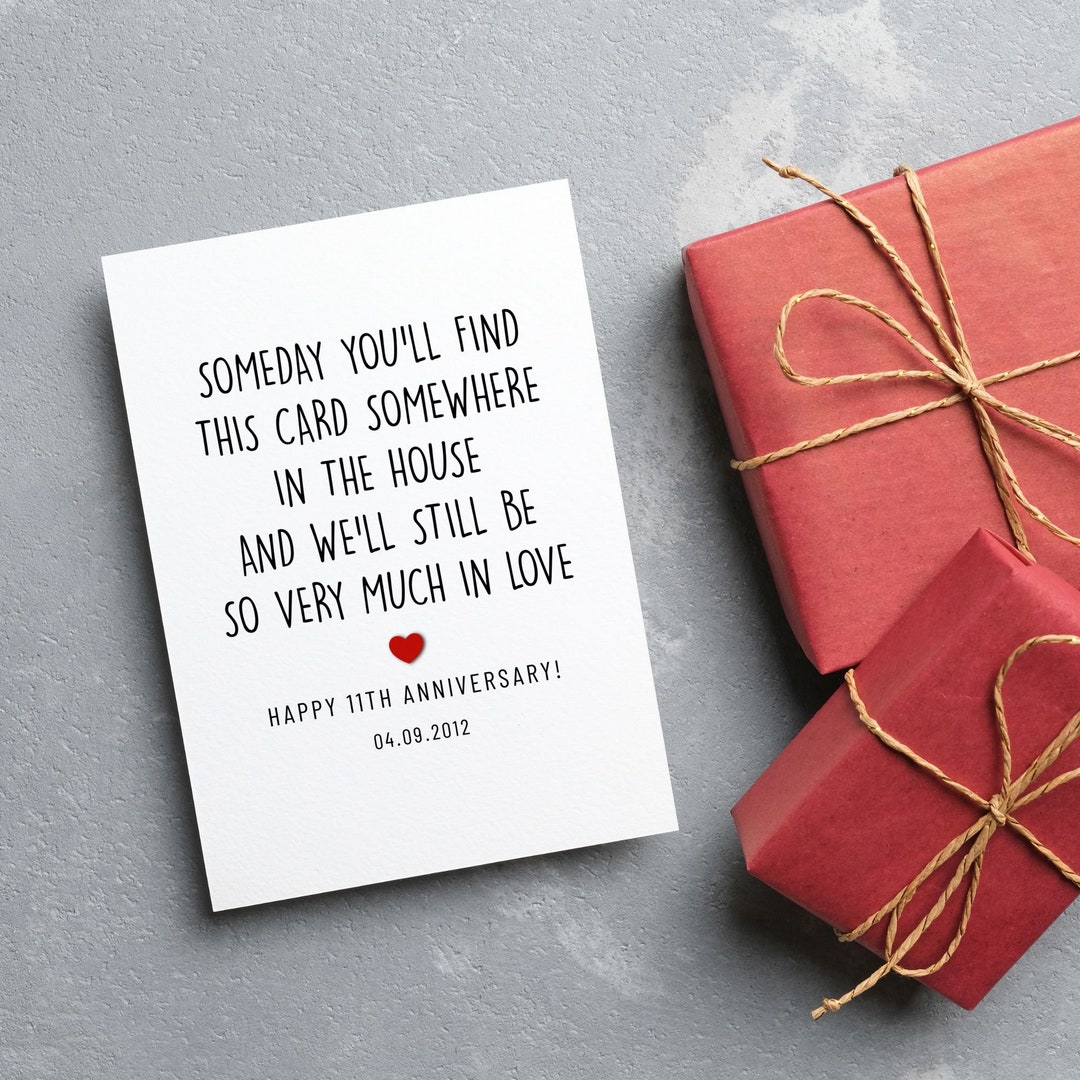 SOMEDAY YOU'LL FIND
THIS CARD SOMEWHERE
IN THE HOUSE
AND WE'LL STILL BE
SO VERY MUCH IN LOVE
HAPPY 11TH ANNIVERSARY!
04.09.2012